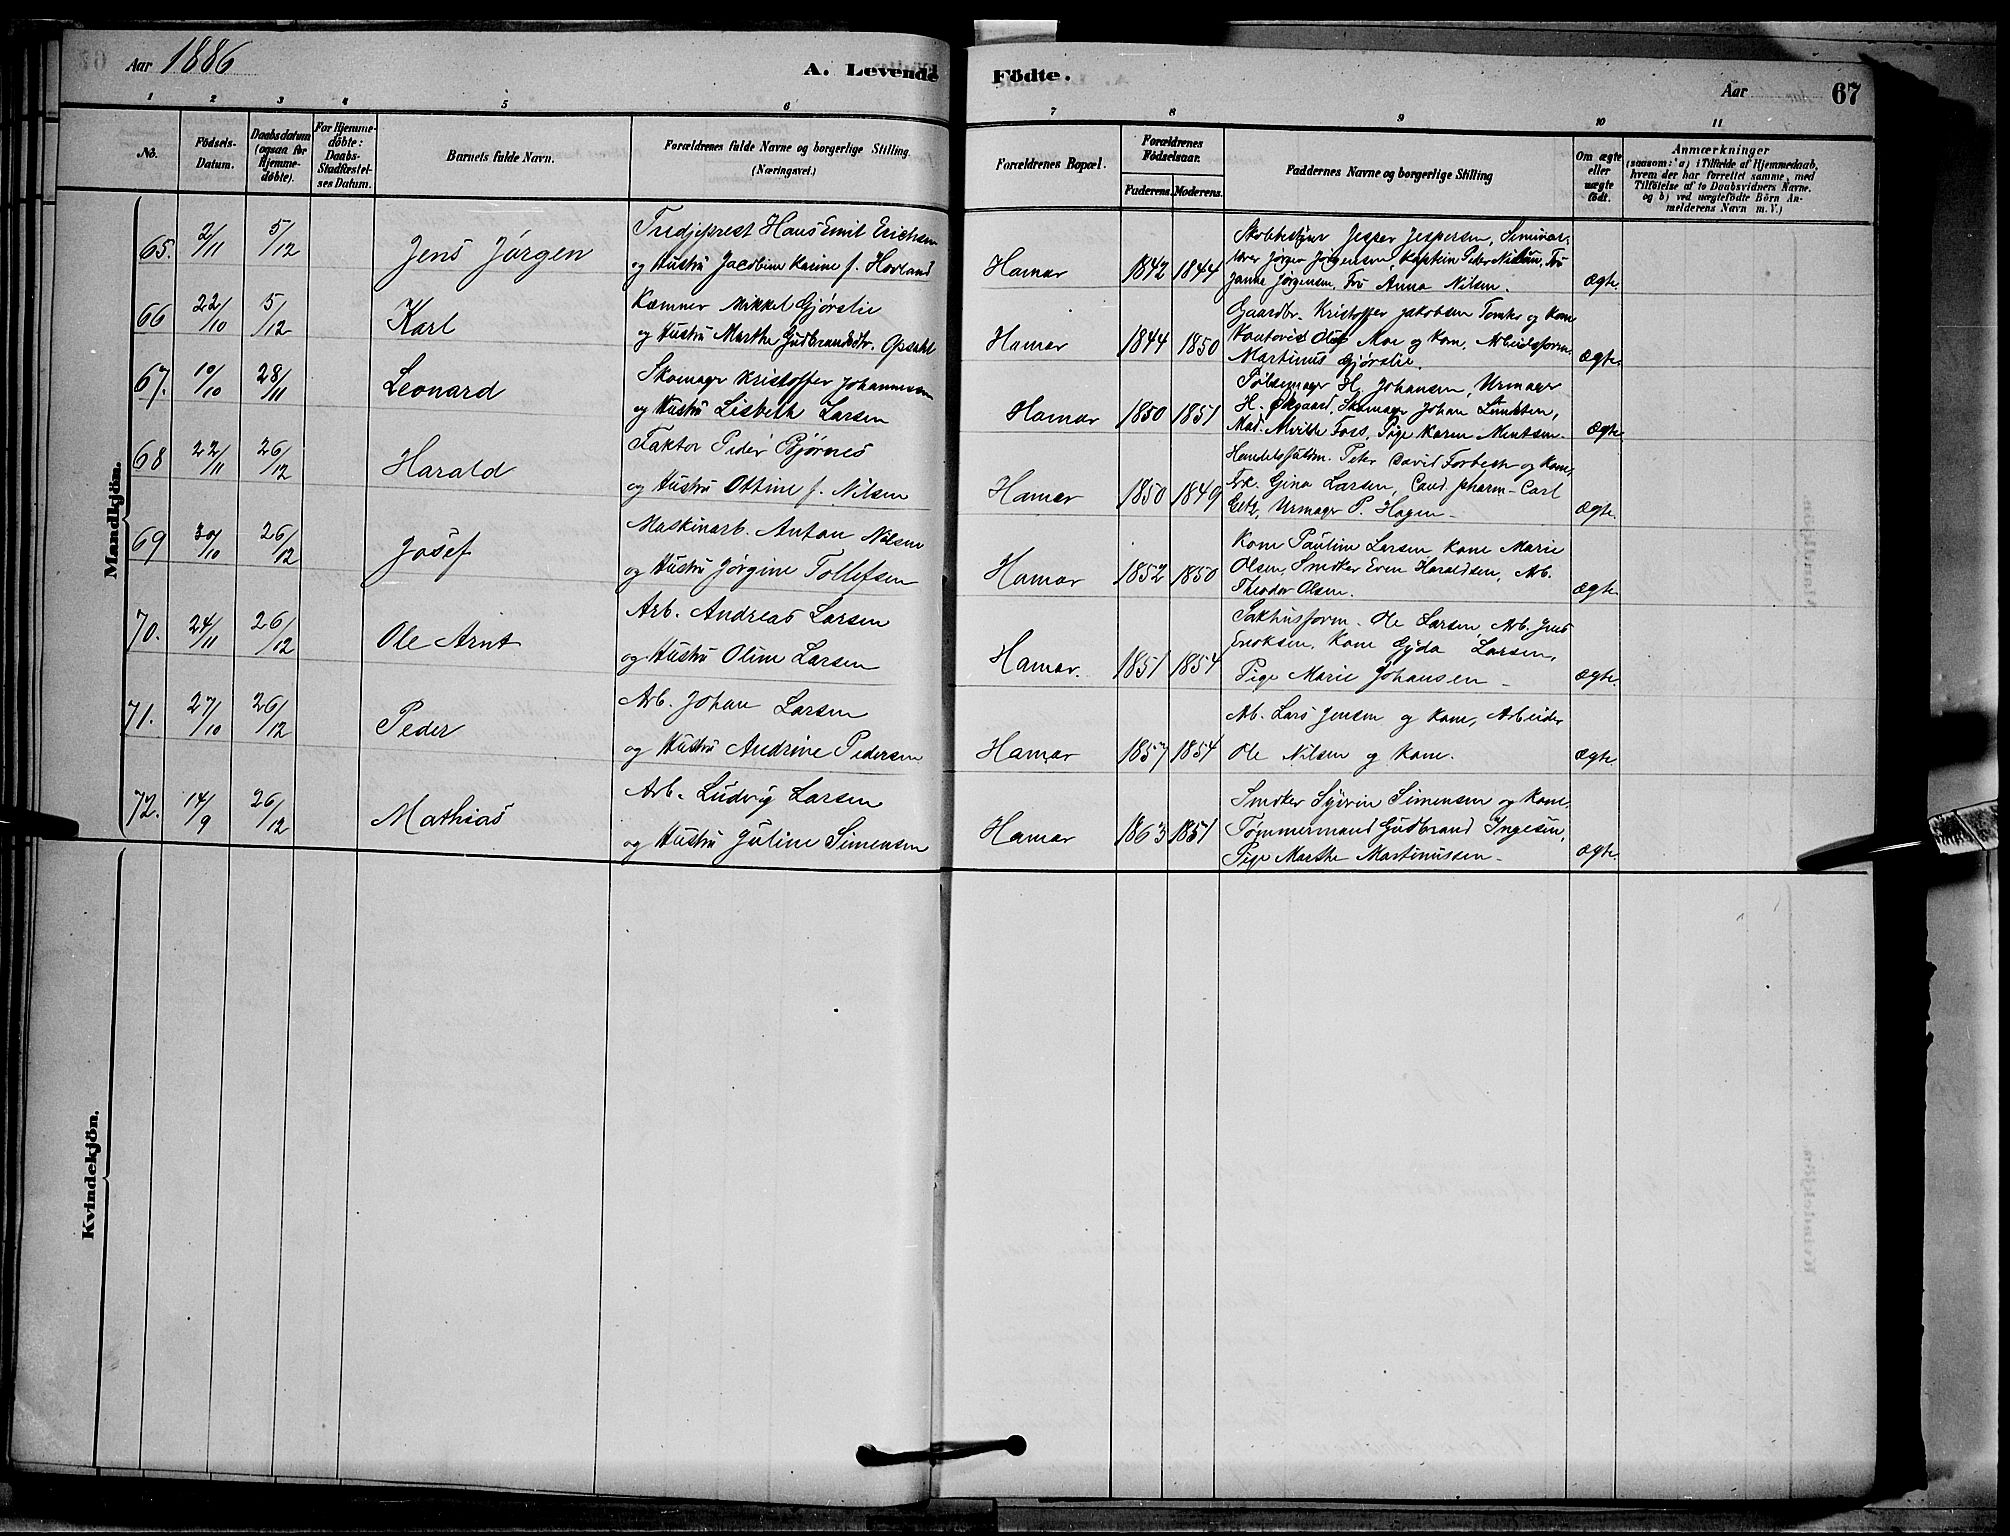 Aar 1886
A. Levende Födte.
Aar 67
1 2 3 4 5 6 7 8 9 10 11
No.
Födsels-Datum.
Daabsdatum (ogsaa for Hjemmedöbte).
For Hjemmedöbte: Daabs-Stadfæstelses Datum.
Barnets fulde Navn.
Forældrenes fulde Navne og borgerlige Stilling. (Næringsvei.)
Forældrenes Bopæl.
Forældrenes Födselsaar.
Faderens. Moderens.
Faddernes Navne og borgerlige Stilling
Om ægte eller uægte födt.
Anmærkninger
(saasom: a) i Tilfælde af Hjemmedaab, hvem der har forrettet samme, med Tilföielse af to Daabsvidners Navne. og b) ved uægtefödte Börn Anmelderens Navn m. V.)
Mandkjön.
65. 2/11 5/12 Jens Jørgen
Tredjeprest Hans Emil Erichsen
og Hustru Jacobine Karine f. Hovland
Hamar 1842 1844
Jesper Jespersen, Seminar-
lærer Jørgen Jørgensen, Kaptein Peder Nilsen, Fru
Janna Jørgensen, Fru Anna Nilsen.
Ægte.
66 22/10 5/12 Karl
Kæmner Mikkel Gjørslie
og Hustru Marthe Gudbrandsdtr. Opsahl
Hamar 1844 1850
Gaardbr. Kristoffer Jakobsen Tomter og Kone
Kontorist Olaf Moe og Kone, Arbeidsform.
Martinus Gjørslie.
Ægte.
67. 10/10 28/11 Leonard
Skomager Kristoffer Johannessen
og Hustru Lisbeth Larsen
Hamar 1850 1851
Pølsemager H. Johansen, Urmager
H. Økgaard, Skomager Johan
Mad. Foss, Pige Karen
Ægte.
68 22/11 26/12 Harald
Faktor Peder Bjørnes
og Hustru Ottine f. Nilsen
Hamar 1850 1849
Handelsfuldm. Peter David Forbech og Kone,
Frk. Gina Larsen, Cand. pharm. Carl
Getz, Urmager P. Hagen.
Ægte.
69 30/10 26/12 Josef
Maskinarb. Anton Nilsen
og Hustru Jørgine Tollefsen
Hamar 1852 1850
Kone Pauline Larsen, Kone Marie
Olsen, Snedker Even Haraldsen, Arb.
Theodor Olsen.
Ægte.
70. 24/11 26/12 Ole Arnt
Arb. Andreas Larsen
og Hustru Oline Larsen
Hamar. 1851 1854
Pakhusform. Ole Larsen, Arb. Jens
Eriksen, Kone Gyda Larsen,
Pige Marie Johansen
Ægte.
71. 27/10 26/12 Peder
Arb. Johan Larsen
og Hustru Andrine Pedersen
Hamar 1857 1854
Arb. Lars Jensen og Kone, Arbeider
Ole Nilsen og Kone.
Ægte.
72. 14/9 26/12 Mathias
Arb. Ludvig Larsen
og Hustru Juline Simensen
Hamar 1863 1851
Snedker Syver Simensen og Kone,
Tømmermand Gudbrand Ingesen,
Pige Marthe Martinussen
Ægte.
Kvindekjön.